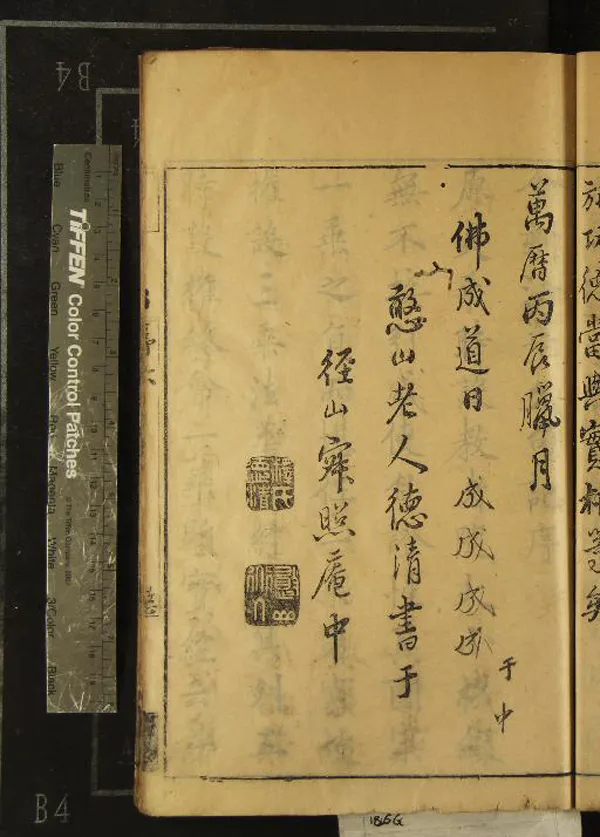 於功德當與寶林等矣
萬曆丙辰臘月
佛成道日 成成成成
于中
山
憨山老人德清書于
徑山寂照庵中
B4
B4
Centimetres
TIFFEN Color Control Patches
Blue
Cyan
Green
Yellow
Red
Magenta
White
3/Color
Black